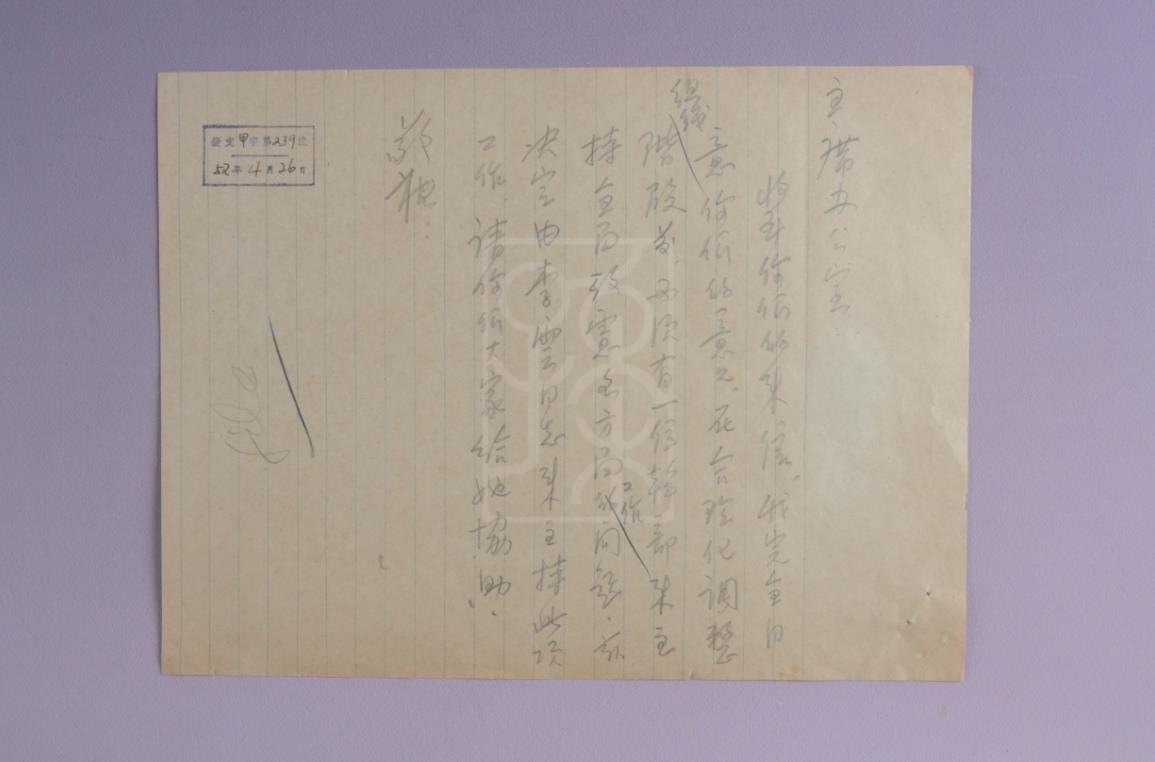 主席办公室：
接到你们的来信，我完全同
意你们的意见。在合理化调整
组织
阶段前，必须有一位干部来主
持全面的考虑各方面的问题，兹
工作
决定由李云同志来主持此项
工作，请你们大家给她协助！
敬礼：
发文甲字第239号
52年4月26日